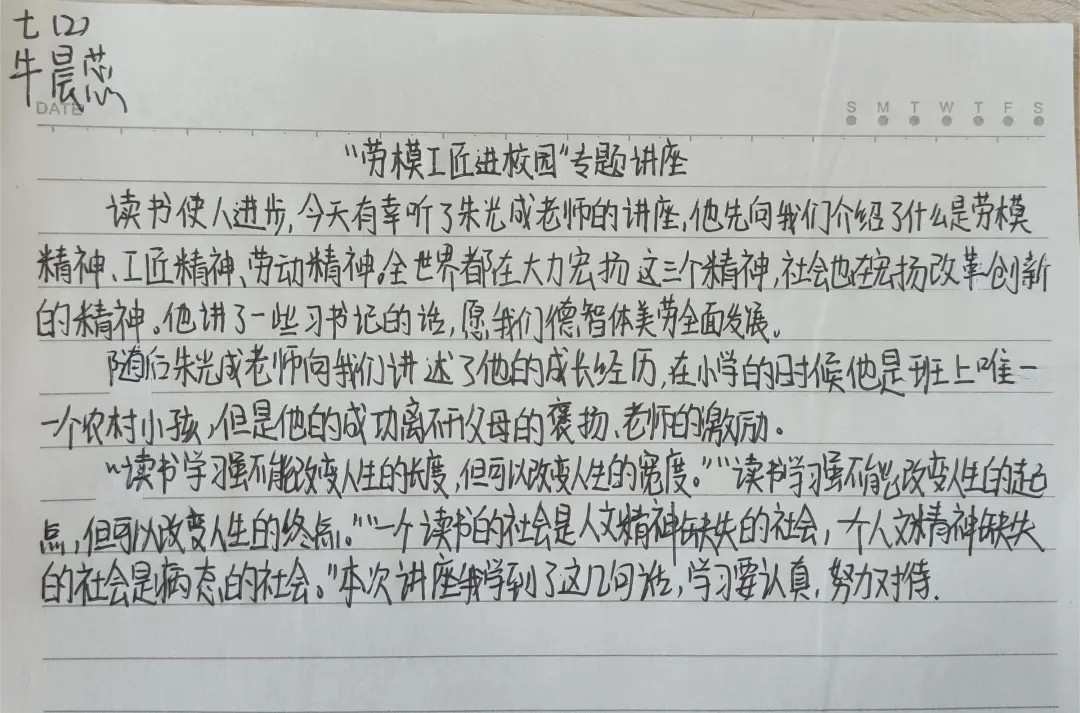 七(2)
牛晨蕊
DATE
S M T W T F S
“劳模工匠进校园”专题讲座
读书使人进步,今天有幸听了朱光成老师的讲座,他先向我们介绍了什么是劳模
精神、工匠精神、劳动精神。全世界都在大力宏扬这三个精神,社会也在宏扬改革创新
的精神。他讲了一些习书记的话,愿我们德智体美劳全面发展。
随后朱光成老师向我们讲述了他的成长经历,在小学的时候他是班上唯一
一个农村小孩,但是他的成功离不开父母的褒扬、老师的激励。
“读书学习虽不能改变人生的长度,但可以改变人生的宽度。”“读书学习虽不能改变人生的起
点,但可以改变人生的终点。”“一个读书的社会是人文精神缺失的社会,个人文精神缺失
的社会是病态的社会。”本次讲座我学到了这几句话,学习要认真,努力对待.